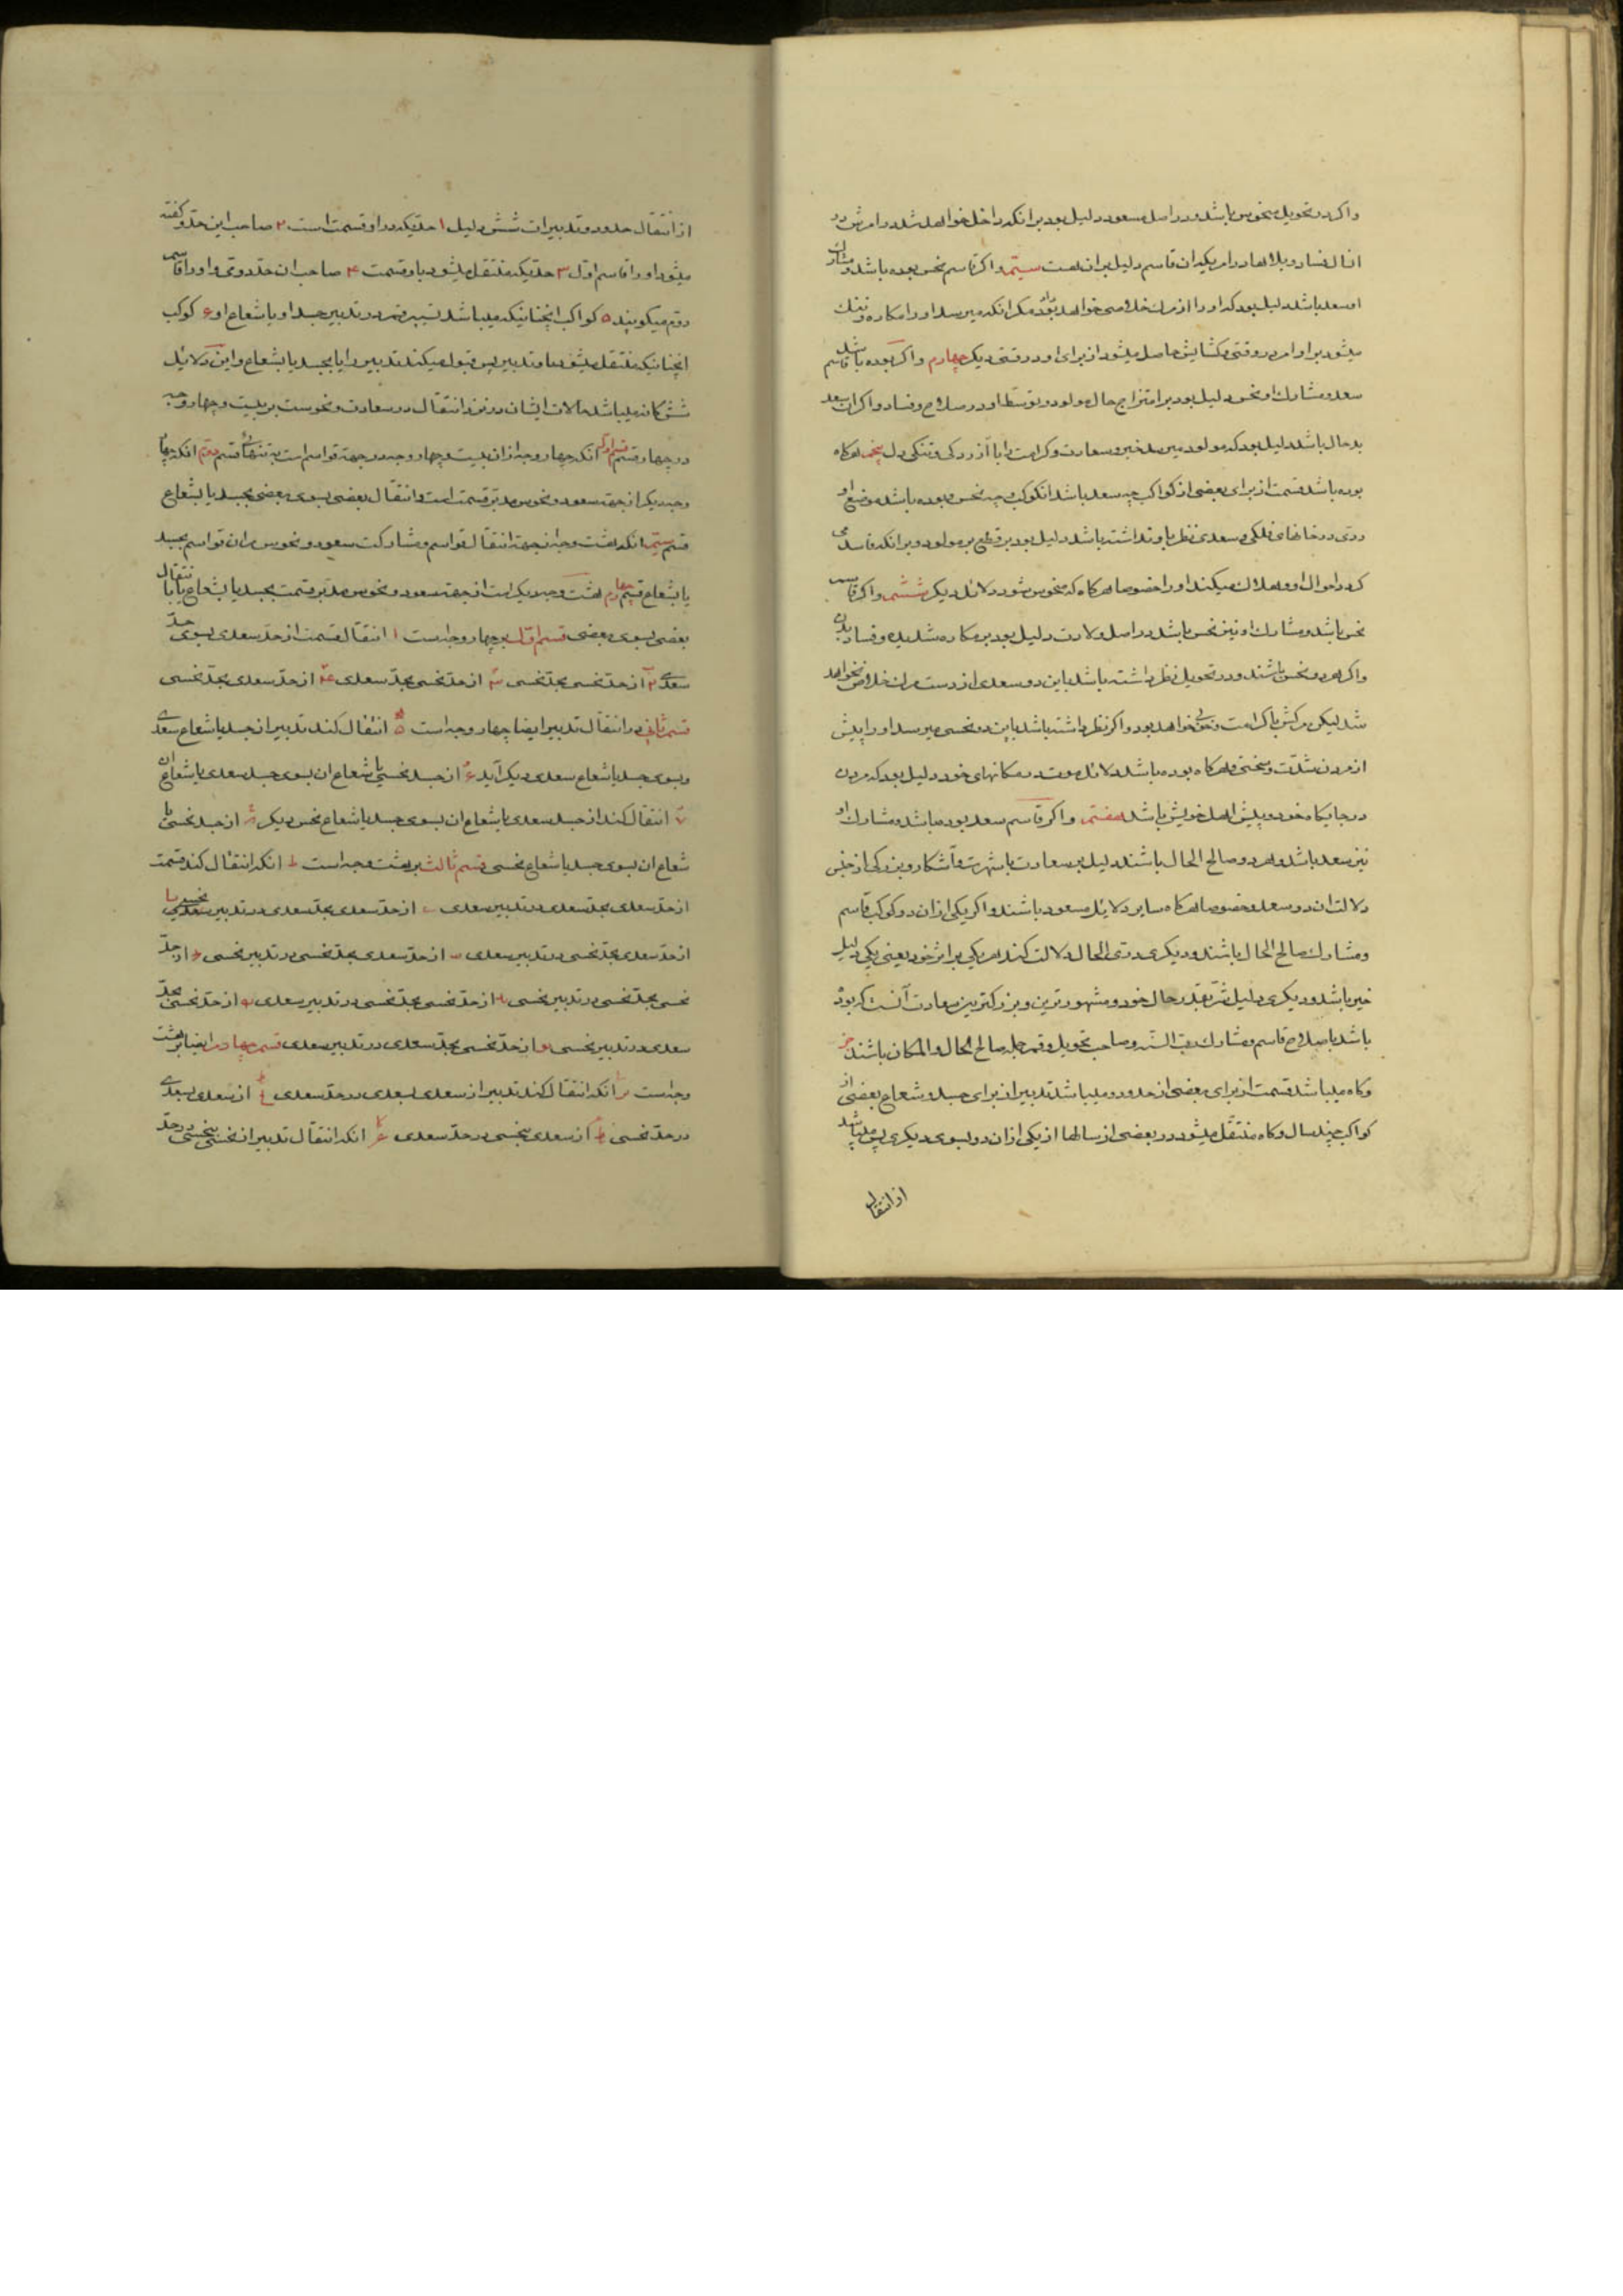 واکر در تحویل نحوس باشد و در اصل سعود دلیل بود برانکه داخل خواهد شد در امرش در
انسال فساد و بلاها در امریکه ان قاسم دلیل بران است سیّم واکر قاسم نحس بوده باشد و مشارک
او سعد باشد دلیل بود که او را از مرک خلاصی خواهد بود مکر انکه میرسد او را مکاره و تنک
میشود بر او امر در وقتی و کشایش حاصل میشود از برای او در وقتی دیکر چهارم واکر بوده باشد قاسم
سعد و مشارک او نحس دلیل بود بر امتزاج حال مولود و توسط او در صلاح و فساد واکر ان سعد
بد حال باشد دلیل بود که مولود میرسد خیر و سعادت و کرامت را با آزردکی و تنکی دل پنجم هرکاه
بوده باشد قسمت از برای بعضی از کواکب چه سعد باشد انکوکب و چه نحس و بوده باشد موضع او
ردی در خانهای فلکی و سعدی نظر باو نداشته باشد دلیل بود بر قطع بر مولود و برانکه فاسد می
کرداند احوال او و هلاک میکند او را خصوصا هرکاه که منحوس شود دلائل دیکر ششم واکر قاسم
نحس باشد و مشارک او نیز نحس باشد در اصل ولادت دلیل بود بر مکاره شدیده و فساد بدن
واکر هر دو نحس باشند و در تحویل نظر داشته باشد باین دو سعدی از دست مرک خلاص نخواهد
شد لیکن مرکش با کرامت و خوبی خواهد بود واکر نظر داشته باشد باین دو نحسی میرسد او را پیش
از مردن مشقّت و سختی و هرکاه بوده باشد دلائل موت در مکانهای خود دلیل بود که مردن
در جایکاه خود و پیش اهل خویش باشد هفتم واکر قاسم سعد بوده باشد و مشارک او
نیز سعد باشد و هر دو صالح الحال باشند دلیل بر سعادت با شهرت و آشکار و بزرکی از جنس
دلالت ان دو سعد و خصوصا هرکاه سایر دلائل مسعود باشند واکر یکی ازان دو کوکب قاسم
و مشارک صالح الحال باشند و دیکری ردی الحال دلالت کند هر یکی بر اثر خود یعنی یکی دلیل
خیر باشد و دیکری دلیل شرّ بقدر حال خود و مشهورترین و بزرکترین سعادت آنست که بوده
باشد با صلاح قاسم و مشارک ربّ السّنه و صاحب تحویل و قمر جمله صالح الحال والمکان باشند
وکاه میباشد قسمت از برای بعضی از حدود و میباشد تدبیر از برای جسد و شعاع بعضی از
کواکب چند سال وکاه منتقل میشود در بعضی از سالها از یکی ازان دو بسوی دیکری پس میباشد
از انتقال
از انتقال حدود و تدبیرات شش دلیل ۱ حدّیکه در او قسمت است ۲ صاحب این حدّ و کفته
میشود او را قاسم اوّل ۳ حدّیکه منتقل میشود باو قسمت ۴ صاحب ان حدّ دوّم و او را قاسم
دوّم میکویند ۵ کواکب انچنانیکه میباشد تسییر قمر در تدبیر جسد او یا شعاع او ۶ کوکب
انچنانیکه منتقل میشود باو تدبیر پس قبول میکند تدبیر را یا بجسد یا بشعاع و این دلائل
ششکانه میباشد حالات ایشان در نزد انتقال در سعادت و نحوست بر بیست و چهار وجه
در چهار قسم قسم اوّل انکه چهار وجه ازان بیست و چهار وجه در جهة قواسم است به تنهائی قسم دوّم انکه چهار
وجه دیکر از جهة سعود و نحوس مدبّر قسمت است و انتقال بعضی بسوی بعضی بجسد یا بشعاع
قسم سیّم انکه هشت وجه از جهة انتقال قواسم و مشارکت سعود و نحوس مران قواسم بجسد
یا بشعاع قسم چهارم هشت وجه دیکر است از جهة سعود و نحوس مدبّر قسمت بجسد یا بشعاع یا انتقال
بعضی بسوی بعضی قسم اوّل بر چهار وجه است ۱ انتقال قسمت از حدّ سعدی بسوی حدّ
سعدی ۲ از حدّ نحسی بحدّ نحسی ۳ از حدّ نحسی بحدّ سعدی ۴ از حدّ سعدی بحدّ نحسی
قسم ثانی در انتقال تدبیر ایضا چهار وجه است ۵ انتقال کند تدبیر از جسد یا شعاع سعدی
و بسوی جسد یا شعاع سعدی دیکر آید ۶ از جسد نحسی یا شعاع ان بسوی جسد سعدی یا شعاع ان
۷ انتقال کند از جسد سعدی یا شعاع ان بسوی جسد یا شعاع نحس دیکر ۸ از جسد نحسی یا
شعاع ان بسوی جسد یا شعاع نحسی قسم ثالث بر هشت وجه است ط انکه انتقال کند قسمت
از حدّ سعدی بحدّ سعدی در تدبیر سعدی از حدّ سعدی بحدّ سعدی در تدبیر نحسی
از حدّ سعدی بحدّ نحسی در تدبیر سعدی از حدّ سعدی بحدّ نحسی در تدبیر نحسی از حدّ
نحسی بحدّ نحسی در تدبیر نحسی از حدّ نحسی بحدّ نحسی در تدبیر سعدی از حدّ نحسی بحدّ
سعدی در تدبیر نحسی از حدّ نحسی بحدّ سعدی در تدبیر سعدی قسم چهارم ایضا بر هشت
وجه است انکه انتقال کند تدبیر از سعدی بسعدی در حدّ سعدی از سعدی بسعدی
در حدّ نحسی از سعدی بنحسی در حدّ سعدی انکه انتقال تدبیر از نحسی بنحسی در حدّ